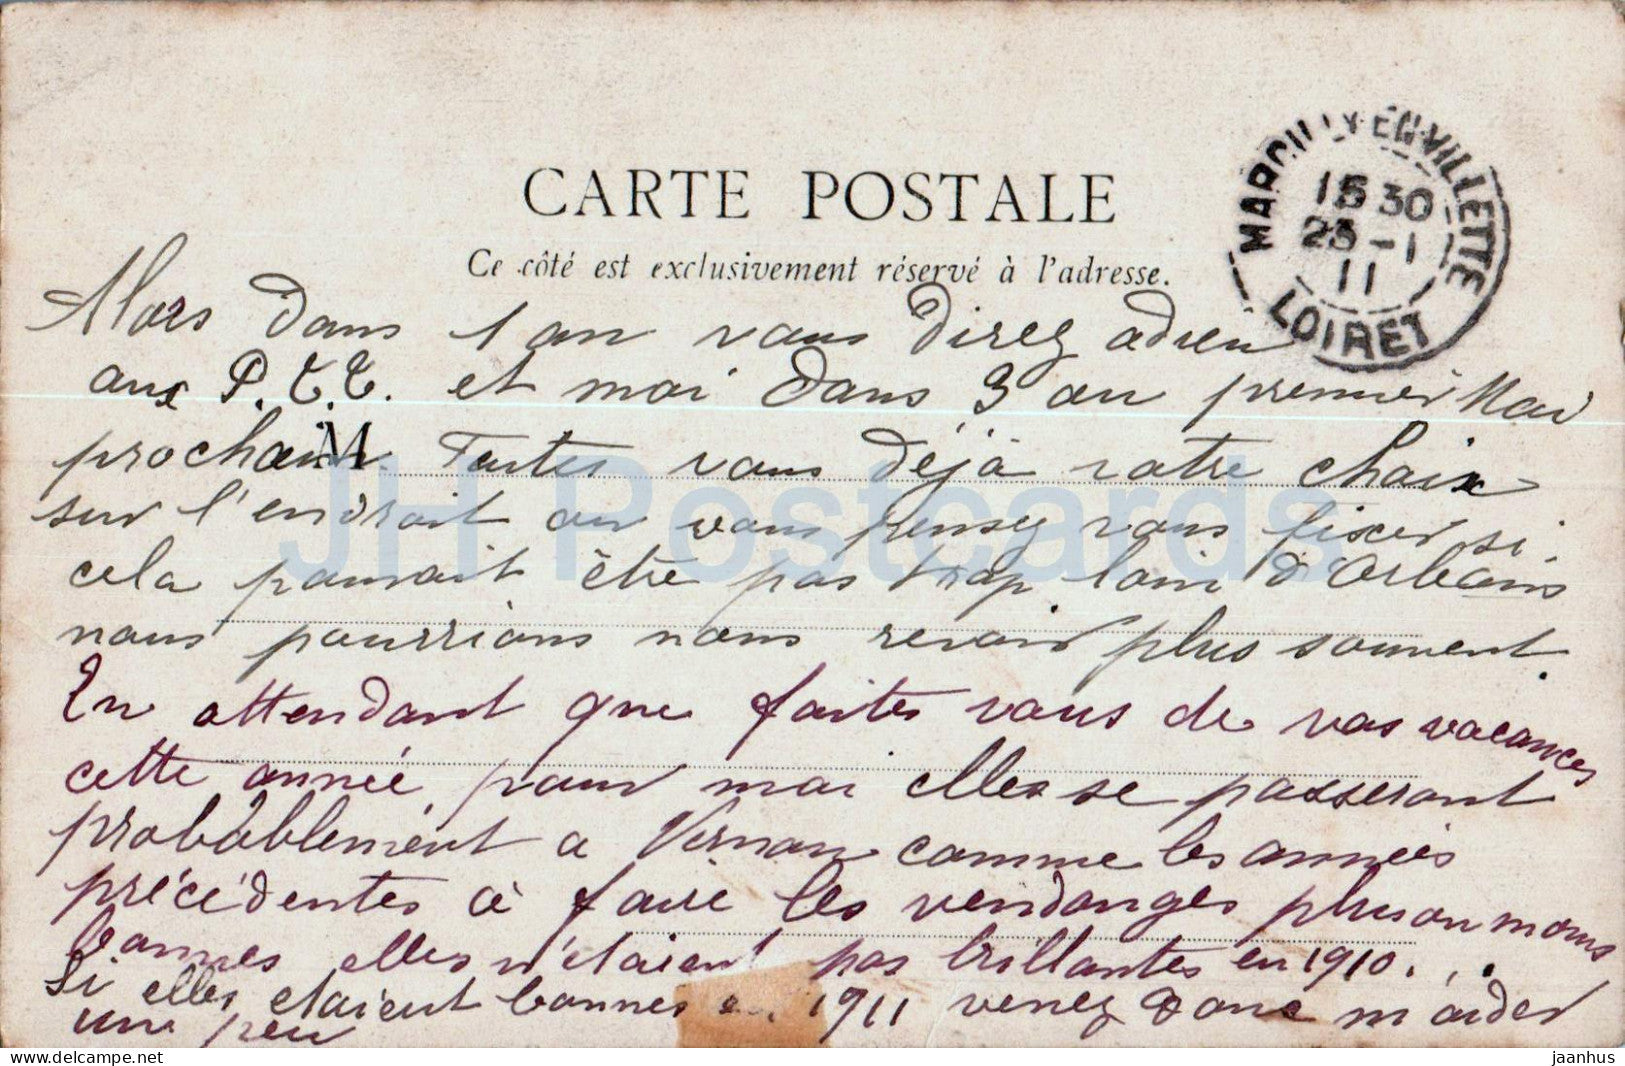 CARTE POSTALE
Ce côté est exclusivement réservé à l'adresse.
MARCILLY-EN-VILLETTE
15 30
23 - 1
11
LOIRET
Alors dans 1 an vous direz adieu
aux P.T.T. et moi dans 3 au premier Mai
prochain. Faites vous déjà votre choix
M
sur l'endroit ou vous pensez vous fixer si
cela pouvait être pas trop loin d'Orleans
nous pourrions nous revoir plus souvent.
En attendant que faites vous de vos vacances
cette année, pour moi elles se passeront
probablement a Vernou comme les années
précédentes à faire les vendanges plus ou moins
bonnes elles n'étaient pas brillantes en 1910.
Si elles etaient bonnes en 1911 venez donc m'aider
un peu
JH Postcards
www.delcampe.net
jaanhe